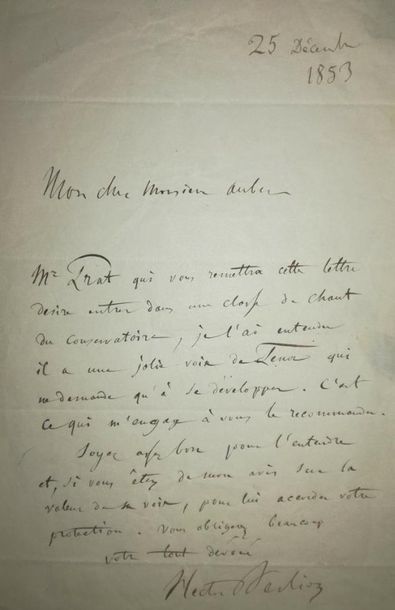 25 Décembre
1853
Mon cher Monsieur auber
Mr Prat qui vous remettra cette lettre
desire entrer dans une classe de chant
du Conservatoire, je l'ai entendu
il a une jolie voix de Tenor qui
ne demande qu'à se développer. C'est
ce qui m'engage à vous le recommander.
Soyez assez bon pour l'entendre
et, si vous êtes de mon avis sur la
valeur de sa voix, pour lui accorder votre
protection. Vous obligerez beaucoup
votre tout dévoué
Hector Berlioz